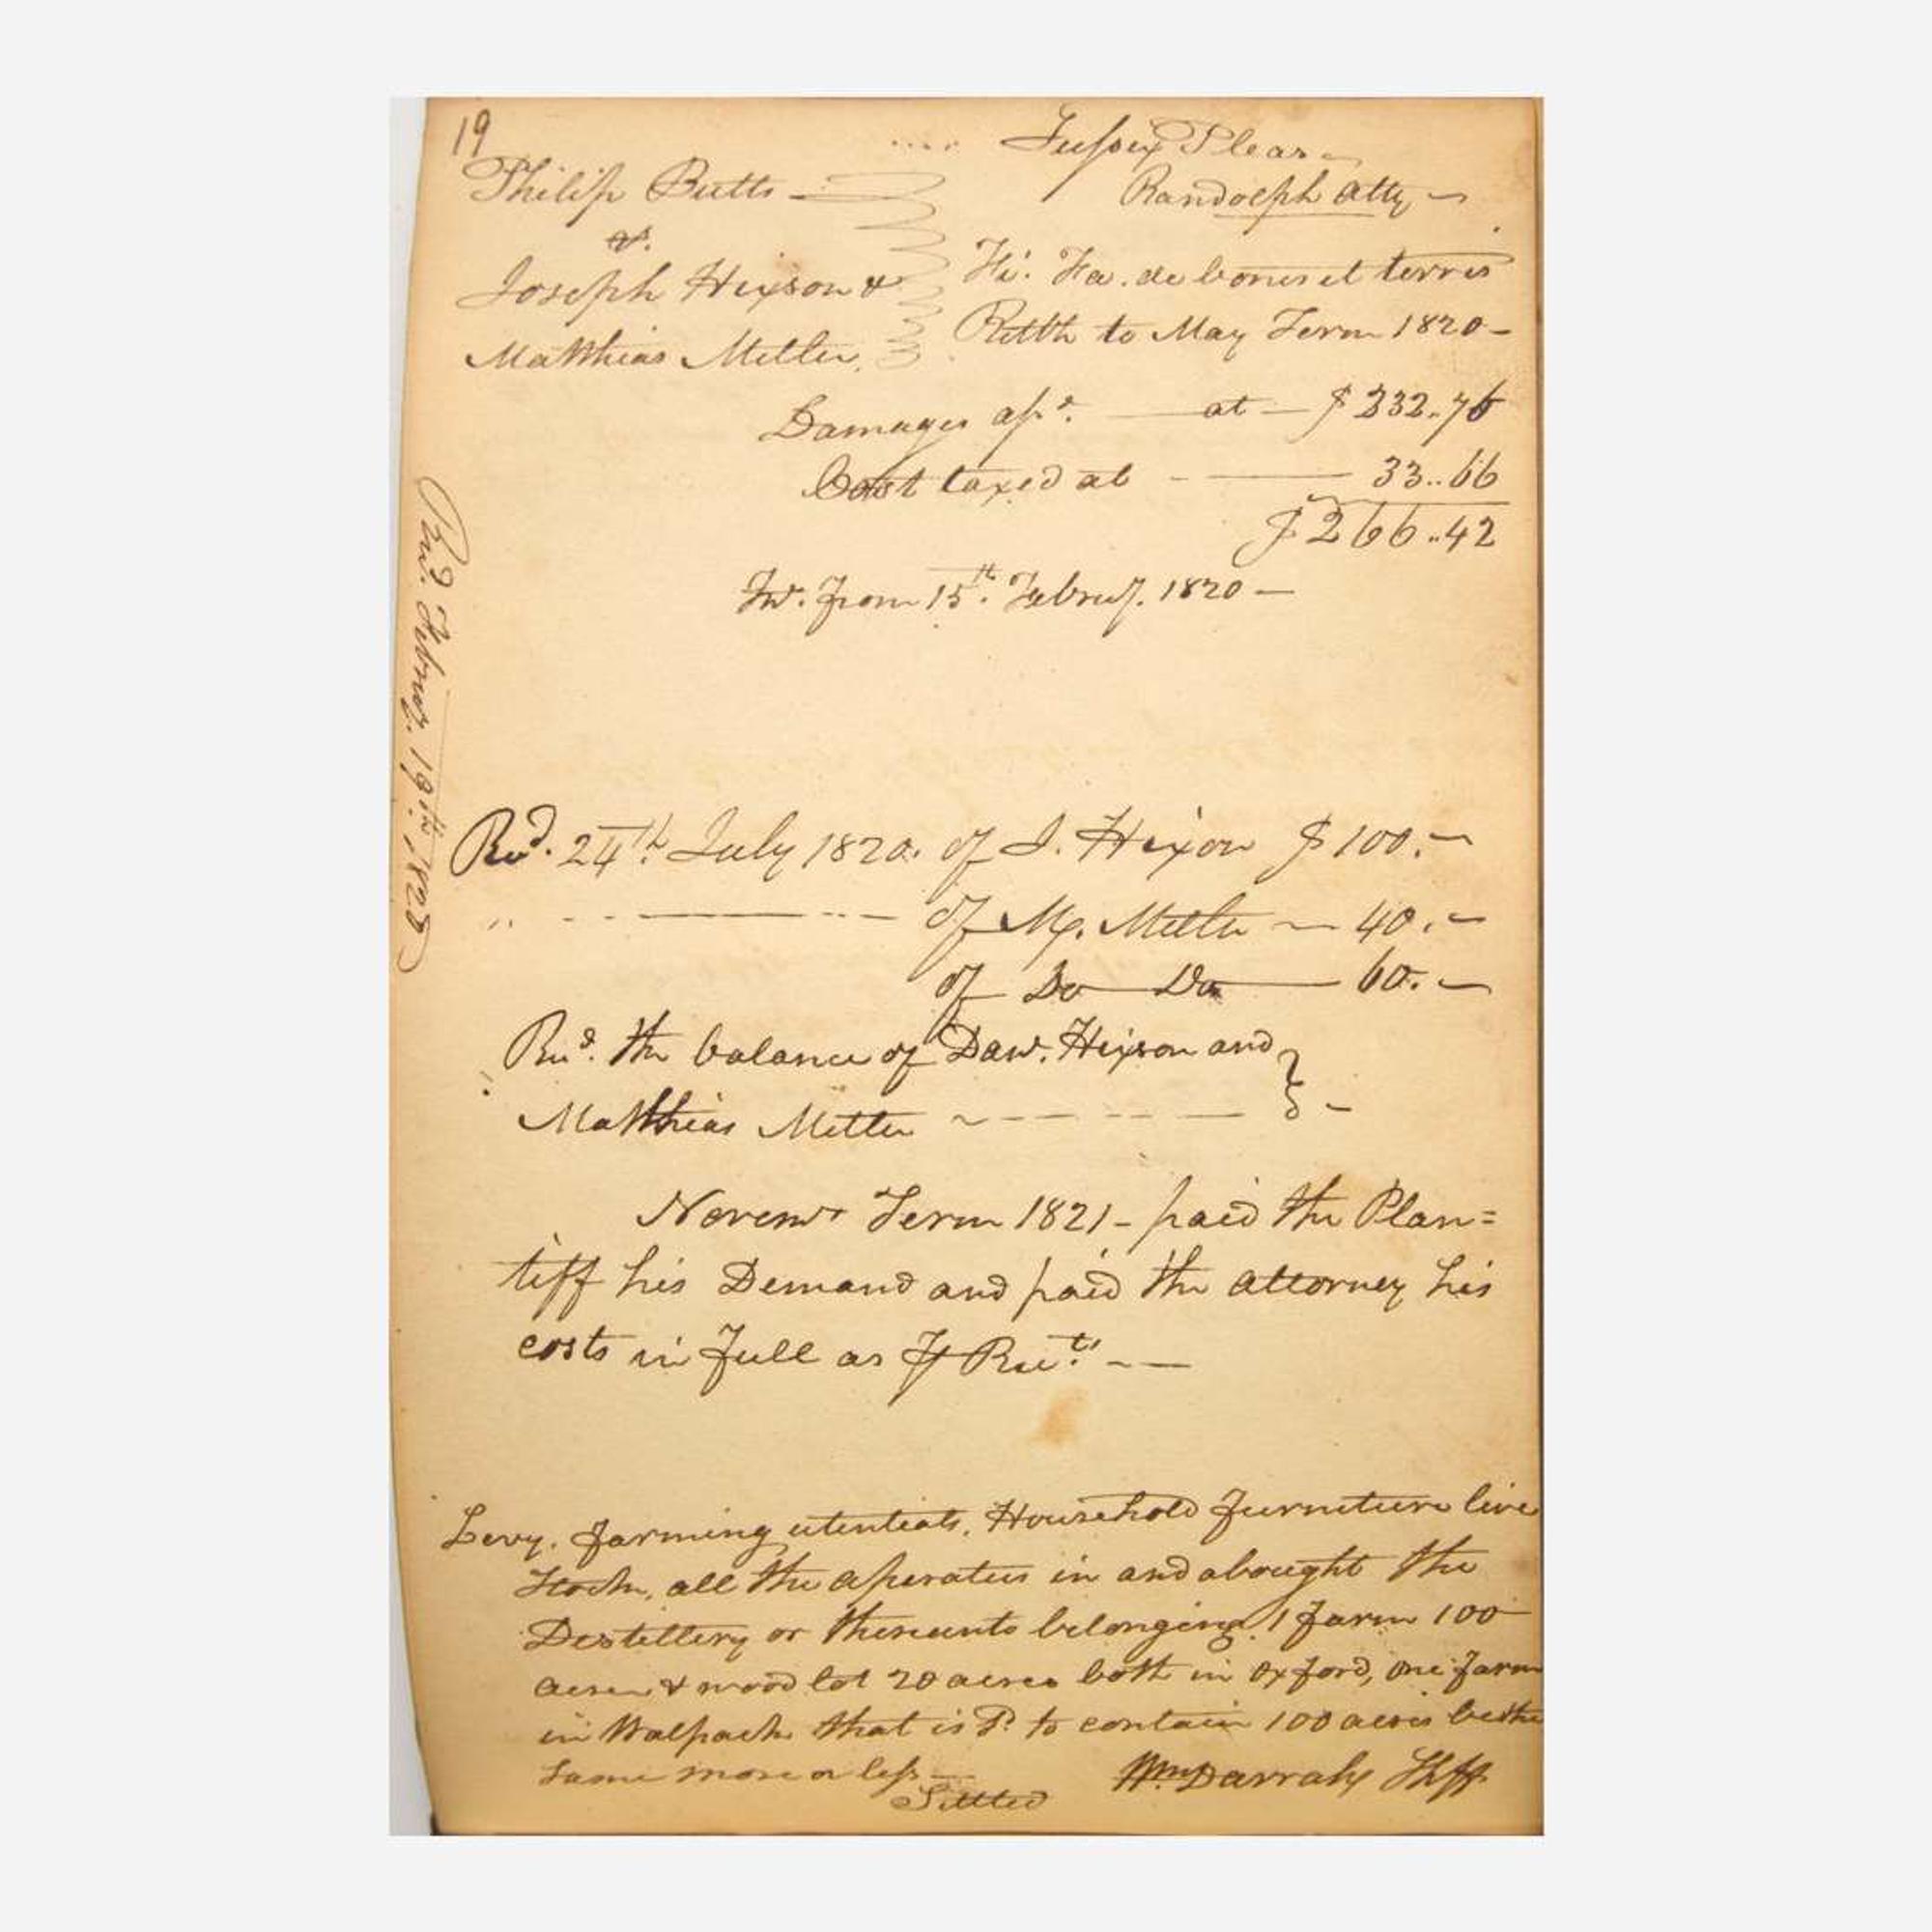 19
Sussex Pleas
Philip Butts
Randolph Atty
vs.
Joseph Hixson &
Fi. Fa. de bonis et terris
Matthias Mettler
Retble to May Term 1820
Damages assd. at $232..76
Cost taxed at 33..66
$266..42
Int. from 15th. Februy. 1820
Recd. Februy. 19th. 1820
Recd. 24th. July 1820. of J. Hixon $100.
of M. Mettler 40.
of Do Do 60.
Recd. the balance of Danl. Hixson and
Matthias Mettler
Novemr Term 1821 - paid the Plan=
tiff his Demand and paid the attorney his
costs in full as pr Rect.
Levy. farming utentials, Household furniture live
Stock, all the aperatus in and abought the
Destillery or thereunto belonging. 1 farm 100
acres & wood lot 20 acres both in Oxford, one farm
in Walpack that is Sd. to contain 100 acres be the
same more or less
Wm Darrah Shff
Settled